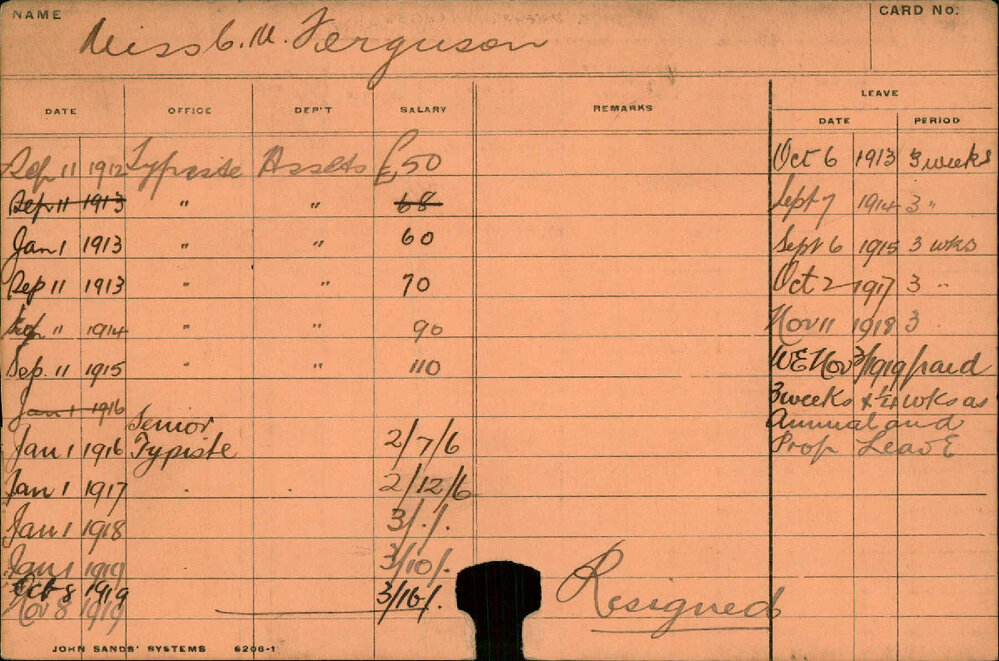 NAME Miss C. M. Ferguson CARD No.
DATE OFFICE DEP'T SALARY REMARKS LEAVE
DATE PERIOD
Sep 11 1912 Typiste Assets £50 Oct 6 1913 3 weeks
Sep 11 1913 " " 68 Sept 7 1914 3 "
Jan 1 1913 " " 60 Sept 6 1915 3 wks
Sep 11 1913 " " 70 Oct 2 1917 3 "
Sep 11 1914 " " 90 Nov 11 1918 3
Sep. 11 1915 " " 110 WE Nov 3/1919 paid
Jan 1 1916 3 weeks & wks as
Senior Annual and
Jan 1 1916 Typiste 2/7/6 Prop Leave
Jan 1 1917 . . 2/12/6
Jan 1 1918 3/./.
Jan 1 1919 3/10/.
Oct 8 1919 3/16/.
Nov 8 1919 Resigned
JOHN SANDS' SYSTEMS 6206-1